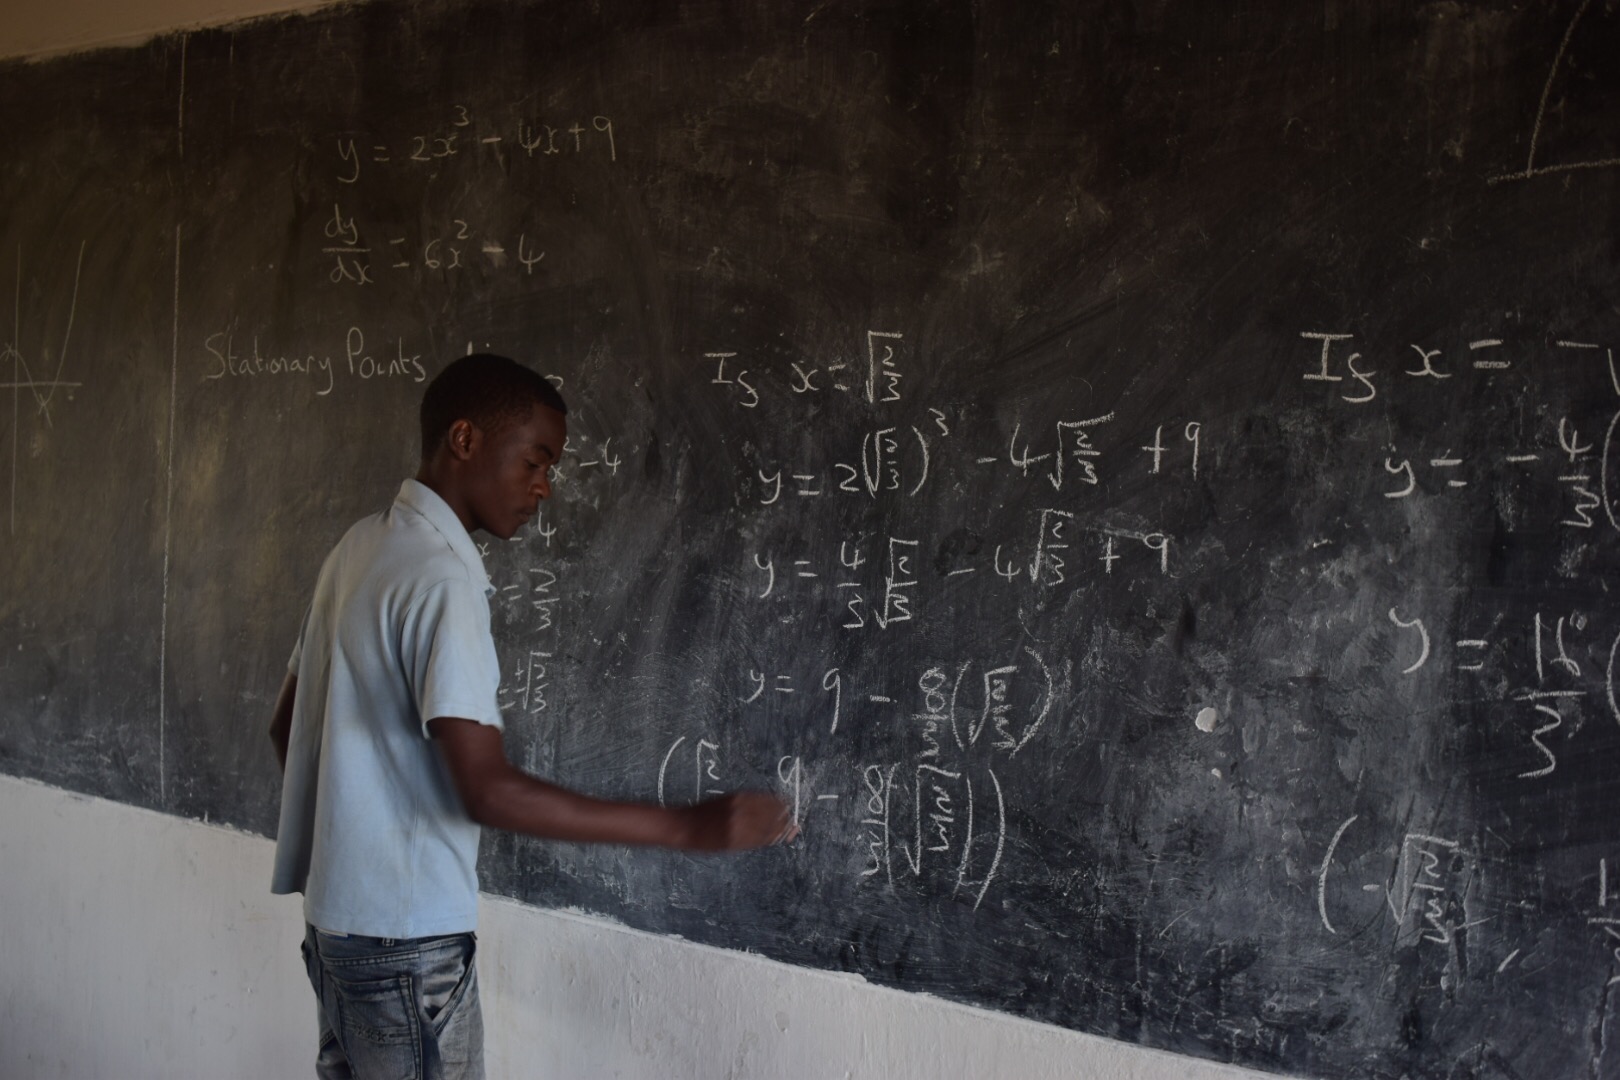 y = 2x³ - 4x + 9
dy/dx = 6x² - 4
Stationary Points
x - 4
x² - 4
= 2/3
= ±√(2/3)
If x = √(2/3)
y = 2(√(2/3))³ - 4√(2/3) + 9
y = 4/3 √(2/3) - 4√(2/3) + 9
y = 9 - 8/3 (√(2/3))
(√2 9 - 8/3 (√(2/3)))
If x = -√
y = - 4/3 (
y = 16/3 (
(-√(2/3)